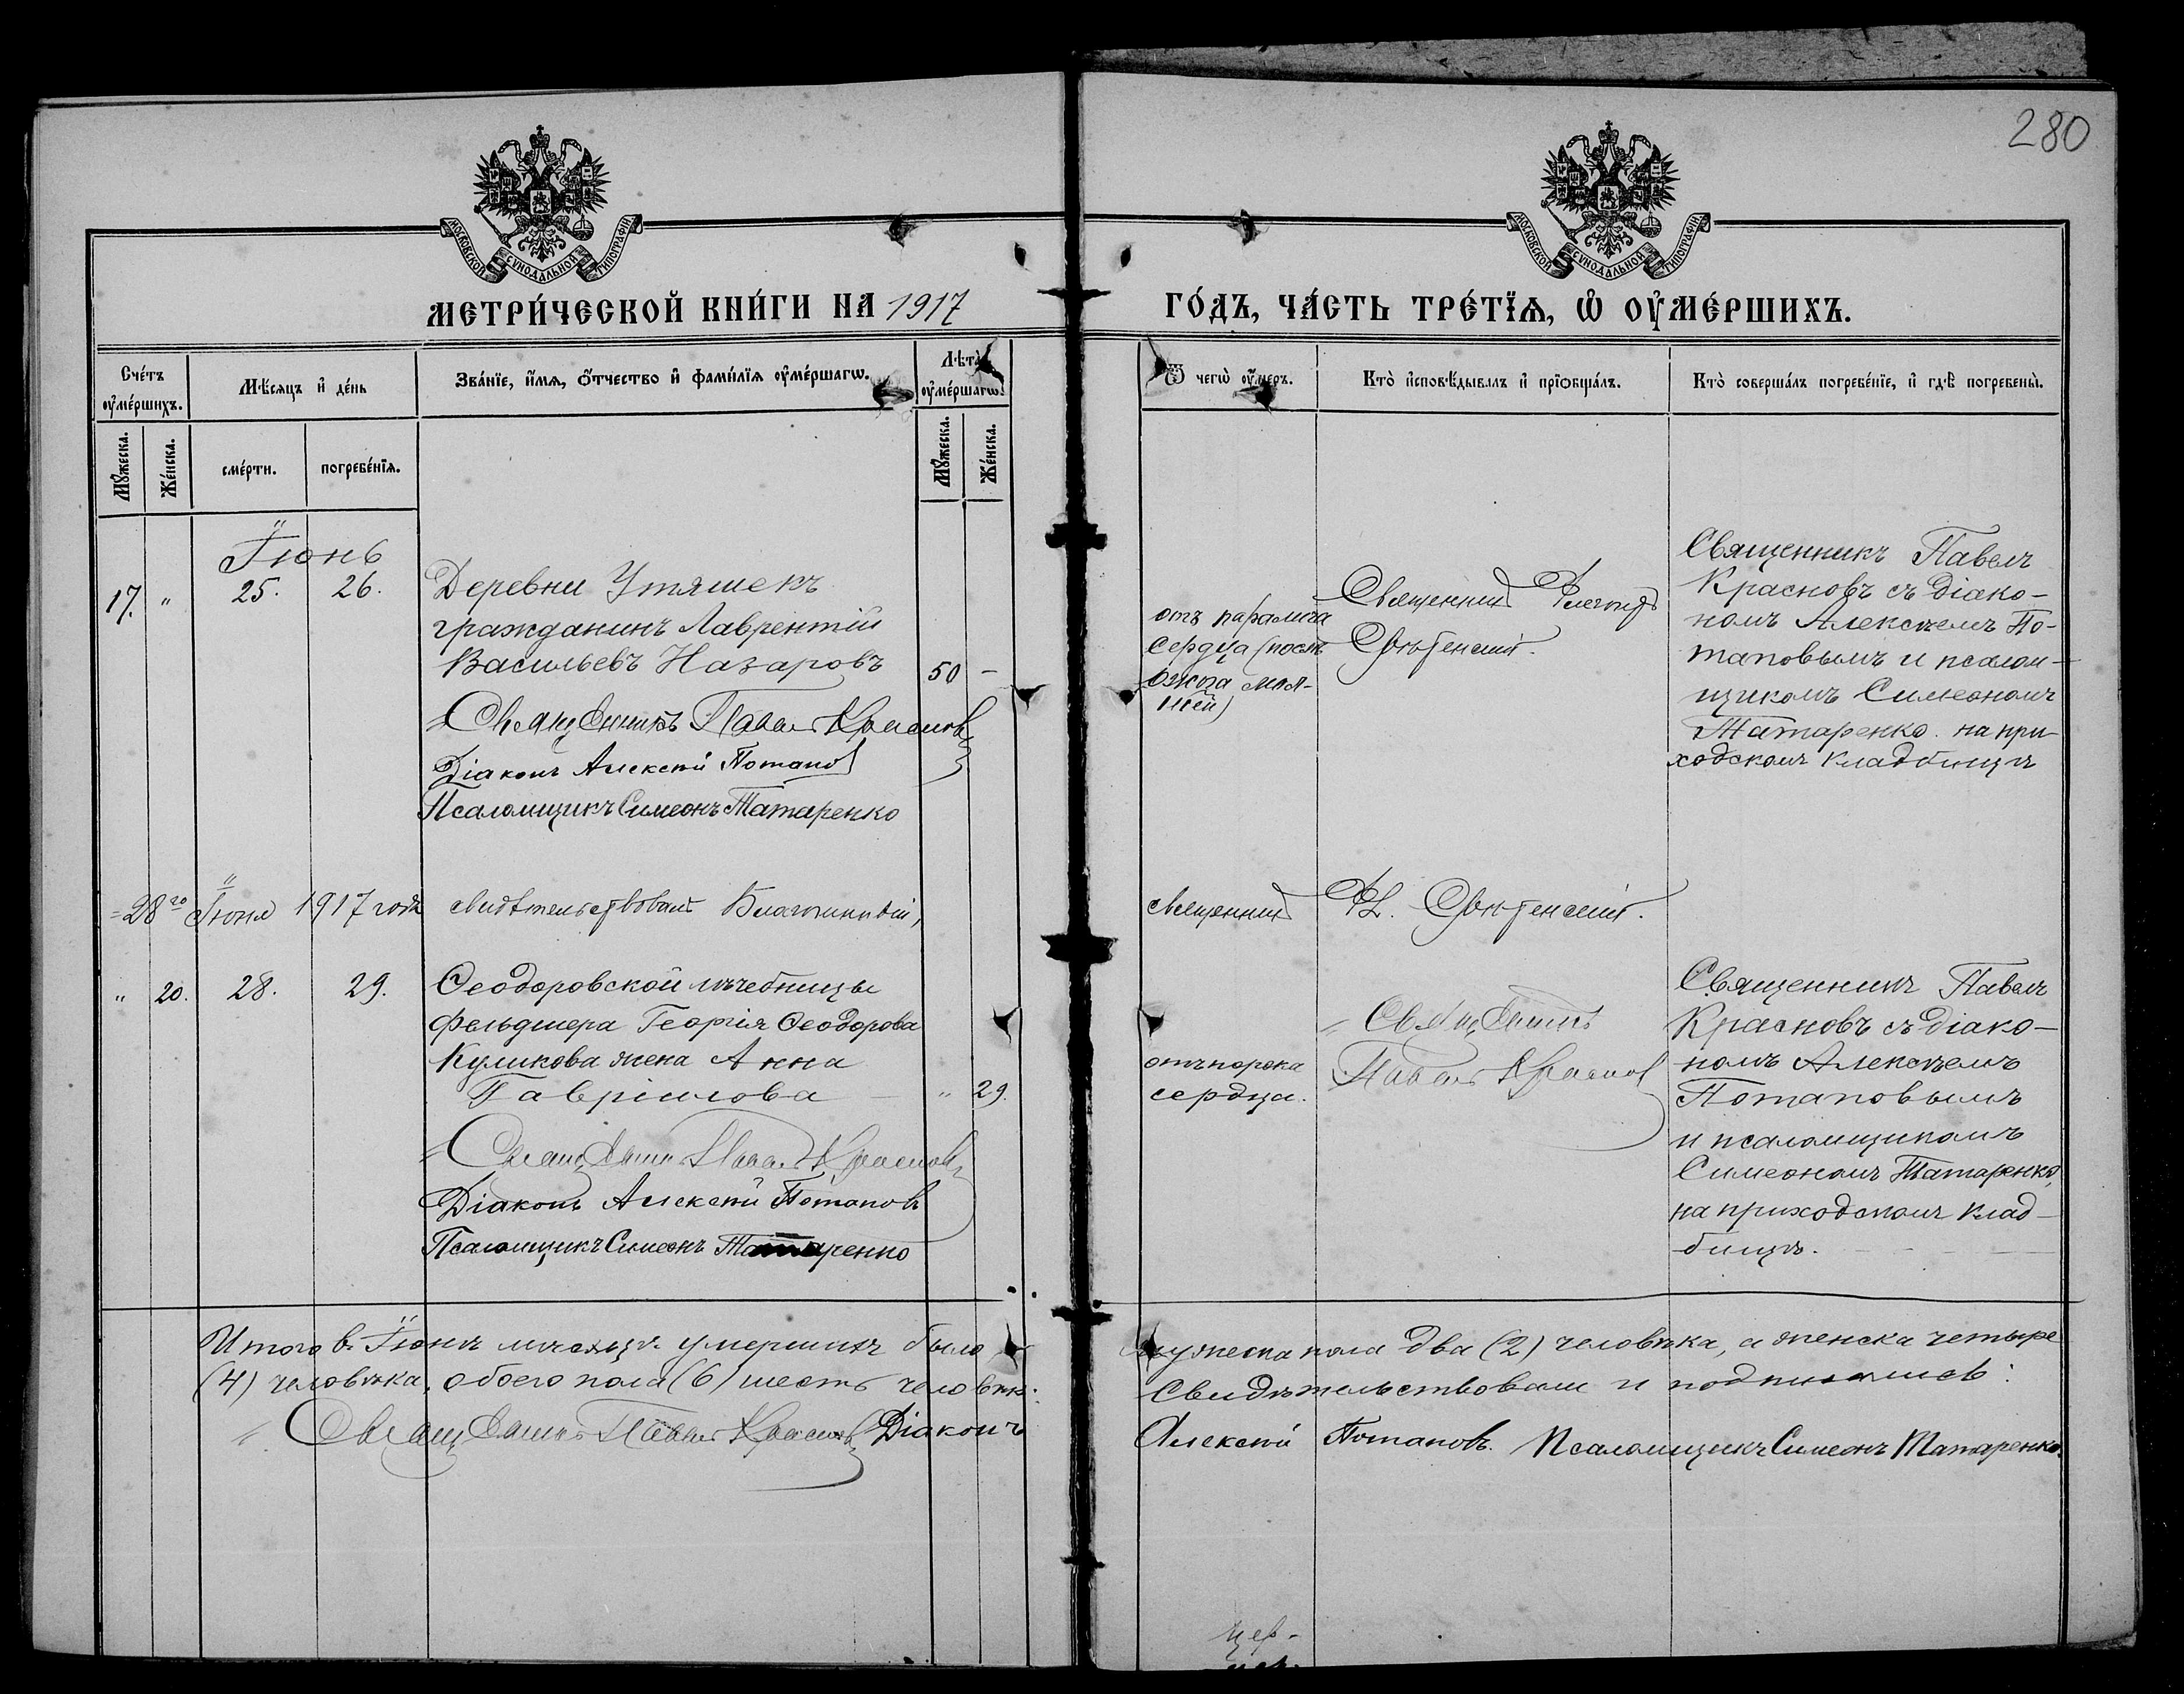 280
МОСКОВСКОЙ СѴНОДАЛЬНОЙ ТИПОГРАФІИ
МОСКОВСКОЙ СѴНОДАЛЬНОЙ ТИПОГРАФІИ
МЕТРИ́ЧЕСКОЙ КНИ́ГИ НА 1917
ГО́ДЪ, ЧА́СТЬ ТРЕ́ТЇѦ, Ѡ҆ ОУ҆МЕ́РШИХЪ.
Сче́тъ оу҆ме́ршихъ.
Мѣ́сяцъ и҆ де́нь
Зва́нїе, и҆́мѧ, ѻ҆́тчество и҆ фами́лїѧ оу҆ме́ршагѡ.
Лѣ́та оу҆ме́ршагѡ.
Ѿ чегѡ̀ оу҆́меръ.
Кто̀ и҆сповѣ́дывалъ и҆ прїѡбща́лъ.
Кто̀ соверша́лъ погребе́нїе, и҆ гдѣ̀ погребены̀.
Мꙋ́жеска.
Же́нска.
сме́рти.
погребе́нїѧ.
Мꙋ́жеска.
Же́нска.
Іюнь
17. " 25. 26.
Деревни Утяшекъ
гражданинъ Лаврентій
Васильевъ Назаровъ 50 -
Священникъ Павелъ Красновъ
Діаконъ Алексѣй Потаповъ
Псаломщикъ Симеонъ Татаренко
отъ паралича
сердца (послѣ
ожога
Священникъ
Священникъ Павелъ
Красновъ съ діако-
номъ Алексѣемъ По-
таповымъ и псалом-
щикомъ Симеономъ
Татаренко на при-
ходскомъ кладбищѣ
28го Іюня 1917 года свидѣтельствовалъ Благочинный,
священникъ
" 20. 28. 29.
Ѳеодоровской лѣчебницы
фельдшера Георгія Ѳеодорова
Куликова жена Анна
Гавріилова " 29.
Священникъ Павелъ Красновъ
Діаконъ Алексѣй Потаповъ
Псаломщикъ Симеонъ Татаренко
отъ порока
сердца.
Священникъ
Павелъ Красновъ
Священникъ Павелъ
Красновъ съ діако-
номъ Алексѣемъ
Потаповымъ
и псаломщикомъ
Симеономъ Татаренко,
на приходскомъ клад-
бищѣ.
Итого въ Іюнѣ мѣсяцѣ умершихъ было мужеска пола два (2) человѣка, а женска четыре
(4) человѣка, обоего пола (6) шесть человѣкъ. Свидѣтельствовали и подписались:
Священникъ Павелъ Красновъ Діаконъ Алексѣй Потаповъ. Псаломщикъ Симеонъ Татаренко.